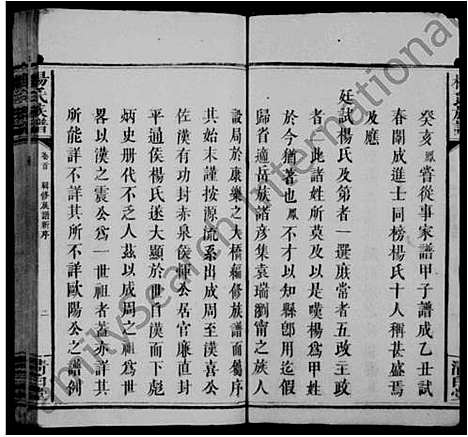 楊氏族譜
癸亥鳳嘗從事家譜甲子譜成乙丑試
春闈成進士同榜楊氏十人稱甚盛焉
及應
廷試楊氏及第者一選庶常者五改主政
者一此諸姓所莫及以是嘆楊為甲姓
於今猶著也鳳不才以知縣即用乞假
歸省適岳族譜彥集袁瑞劉甯之族人
設局於康樂之大橋纂修族譜而屬序
其始末謹按源流系出成周至漢喜公
佐漢有功封赤泉侯惲公居官廉直封
平通侯楊氏遂大顯於世自漢而下彪
炳史册代不乏人茲以成周之 為世
畧以漢之震公為一世祖者 亦詳其
所能詳不詳其所不能詳歐陽公之譜例
楊氏族譜
卷首
纂修族譜新序
二
清白堂
FamilySearch International